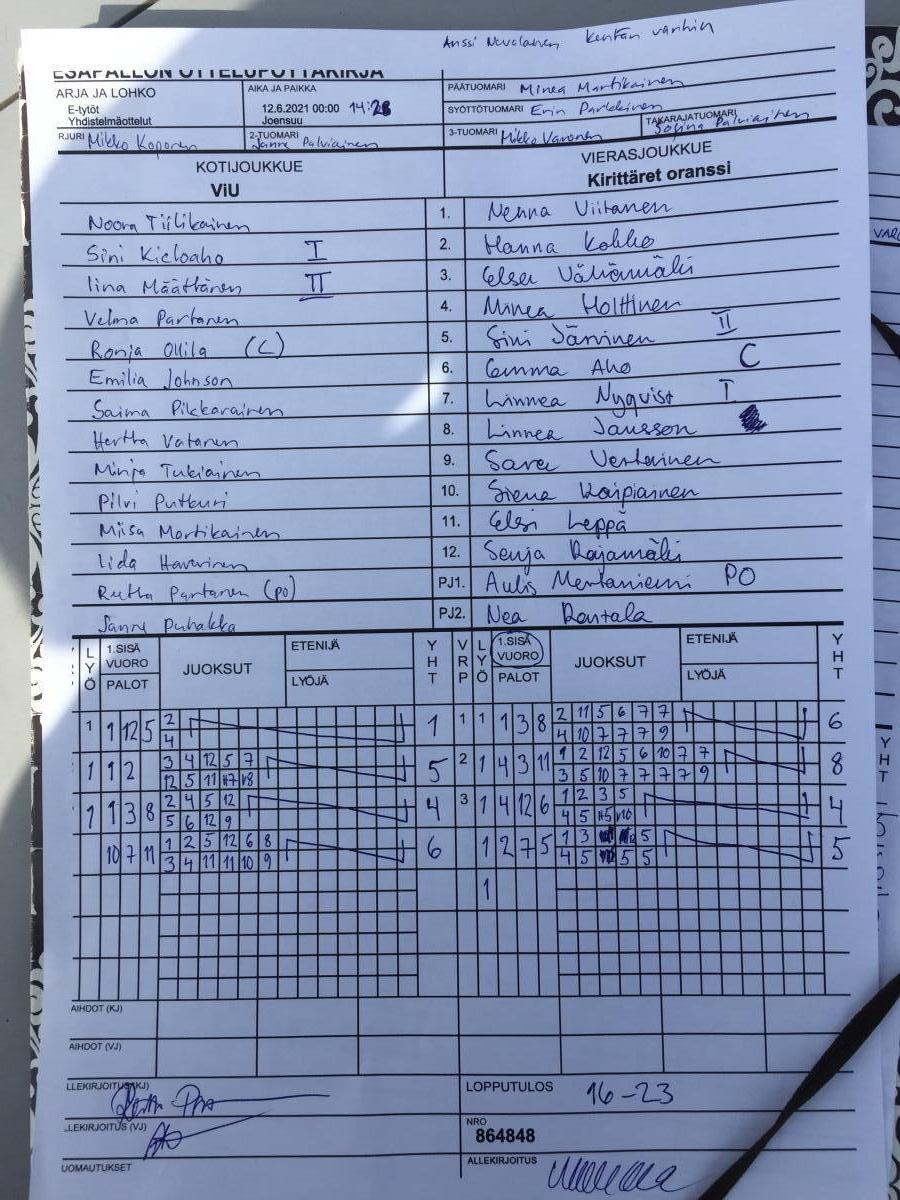 Anssi Nevalainen kentän vanhin
ESÄPALLON OTTELUPÖYTÄKIRJA
ARJA JA LOHKO
E-tytöt
Yhdistelmäottelut
AIKA JA PAIKKA
12.6.2021 00:00 14:28
Joensuu
PÄÄTUOMARI Minea Martikainen
SYÖTTÖTUOMARI Erin Parkkinen
RJURI Mikko Koponen
2-TUOMARI Janne Palviainen
3-TUOMARI Mikko Varonen
TAKARAJATUOMARI Palviainen
KOTIJOUKKUE
ViU
VIERASJOUKKUE
Kirittäret oranssi
Noora Tiilikainen 1. Nenna Viitanen
Sini Kieloaho I 2. Hanna Kokko
Iina Määttänen II 3. Elsa Vähämäki
Velma Partanen 4. Minea Holttinen
Ronja Ollila (C) 5. Sini Järvinen II
Emilia Johnson 6. Emma Aho C
Saima Pikkarainen 7. Linnea Nyqvist I
Hertta Vatanen 8. Linnea Jansson
Minja Tukiainen 9. Sara Vertainen
Pilvi Putkuri 10. Siena Kaipiainen
Miisa Martikainen 11. Elsi Leppä
Iida Havurinen 12. Senja Rajamäki
Rutha Partanen (PO) PJ1. Aulis Mertaniemi PO
Sanna Puhakka PJ2. Nea Rantala
LYÖ 1.SISÄ VUORO PALOT JUOKSUT ETENIJÄ LYÖJÄ YHT VRP LYÖ 1.SISÄ VUORO PALOT JUOKSUT ETENIJÄ LYÖJÄ YHT
1 1 12 5 2 1 1 1 1 3 8 2 11 5 6 7 7 6
4 4 10 7 7 7 9
1 1 2 3 4 12 5 7 5 2 1 4 3 11 1 2 12 5 6 10 7 7 8
12 5 11 #7 #8 3 5 10 7 7 7 7 9
1 1 3 8 2 4 5 12 4 3 1 4 12 6 1 2 3 5 4
5 6 12 9 4 5 #5 #10
10 7 11 1 2 5 12 6 8 6 1 2 7 5 1 3 5 5
3 4 11 11 10 9 4 5 5 5
1
AIHDOT (KJ)
AIHDOT (VJ)
LLEKIRJOITUS(KJ)
LOPPUTULOS 16-23
LLEKIRJOITUS (VJ)
NRO
864848
UOMAUTUKSET
ALLEKIRJOITUS